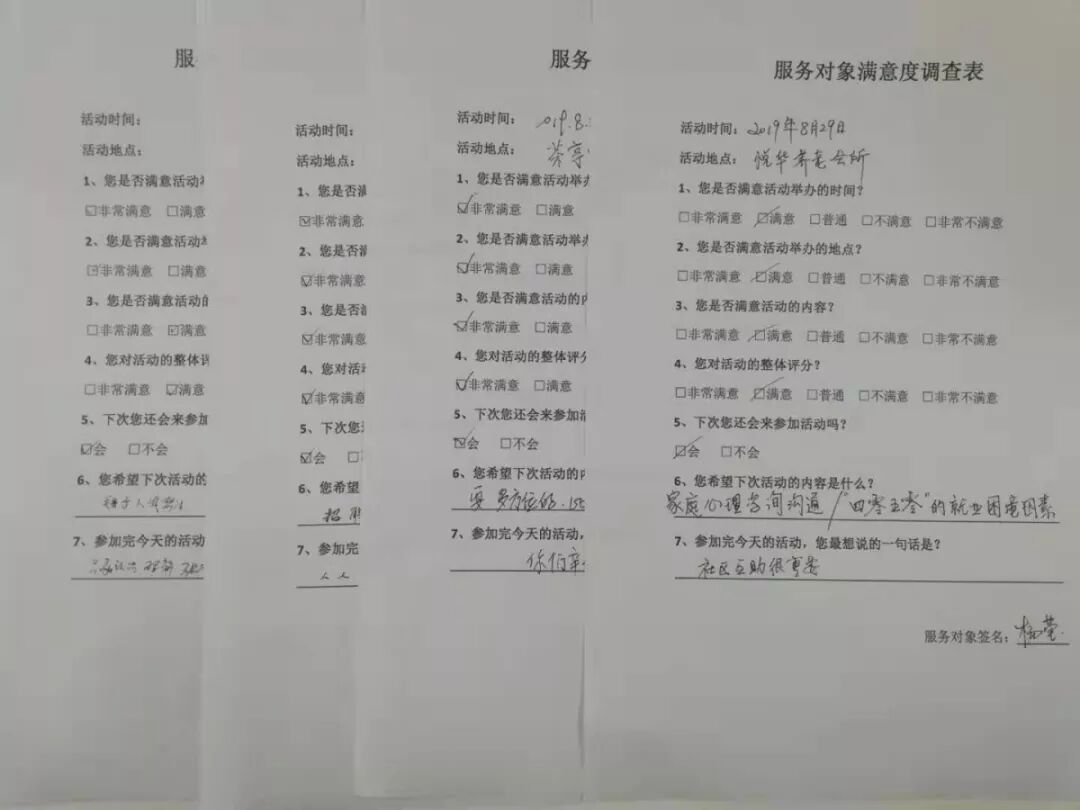 服
活动时间:
活动地点:
1、您是否满意活动
☑非常满意 □满意
2、您是否满意活动
☑非常满意 □满意
3、您是否满意活动的
□非常满意 ☑满意
4、您对活动的整体评
□非常满意 ☑满意
5、下次您还会来参加
☑会 □不会
6、您希望下次活动的
7、参加完今天的活动
活动时间:
活动地点:
1、您是否满
☑非常满意
2、您是否满
☑非常满意
3、您是否满
☑非常满意
4、您对活
☑非常满意
5、下次您
☑会
6、您希望
招聘
7、参加完
人人
服务
活动时间: 019.8.
活动地点:
1、您是否满意活动举办
☑非常满意 □满意
2、您是否满意活动举办
☑非常满意 □满意
3、您是否满意活动的内
☑非常满意 □满意
4、您对活动的整体评分
☑非常满意 □满意
5、下次您还会来参加活
☑会 □不会
6、您希望下次活动的内
要多方位的.
7、参加完今天的活动,
服务对象满意度调查表
活动时间: 2019年8月29日
活动地点: 悦华养老会所
1、您是否满意活动举办的时间?
□非常满意 ☑满意 □普通 □不满意 □非常不满意
2、您是否满意活动举办的地点?
□非常满意 ☑满意 □普通 □不满意 □非常不满意
3、您是否满意活动的内容?
□非常满意 ☑满意 □普通 □不满意 □非常不满意
4、您对活动的整体评分?
□非常满意 ☑满意 □普通 □不满意 □非常不满意
5、下次您还会来参加活动吗?
☑会 □不会
6、您希望下次活动的内容是什么?
家庭心理咨询沟通/"四零五零"的就业困境因素
7、参加完今天的活动,您最想说的一句话是?
社区互助很重要
服务对象签名: 杨莹